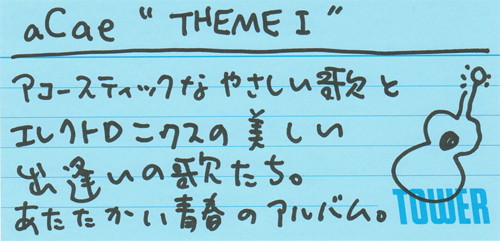 aCae "THEME I"
アコースティックなやさしい歌と
エレクトロニクスの美しい
出逢いの歌たち。
あたたかい青春のアルバム。
TOWER